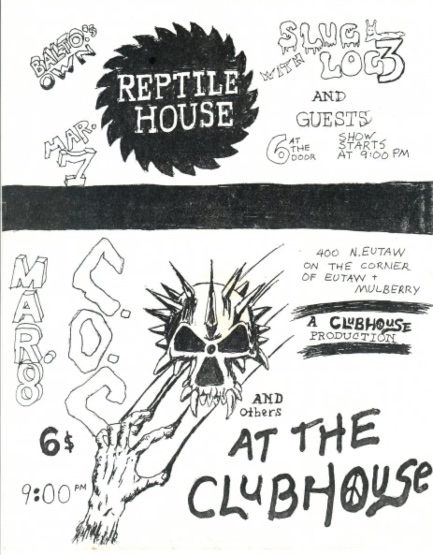 BALTO'S
OWN
MAR.
7
REPTILE
HOUSE
WITH
SLUGL
LOC3
AND
GUESTS
6 AT THE DOOR
SHOW STARTS AT 9:00 PM
MAR. 8
C.O.C.
6$
9:00 PM
400 N.EUTAW
ON THE CORNER
OF EUTAW +
MULBERRY
A CLUBHOUSE
PRODUCTION
AND
Others
AT THE
CLUBHOUSE